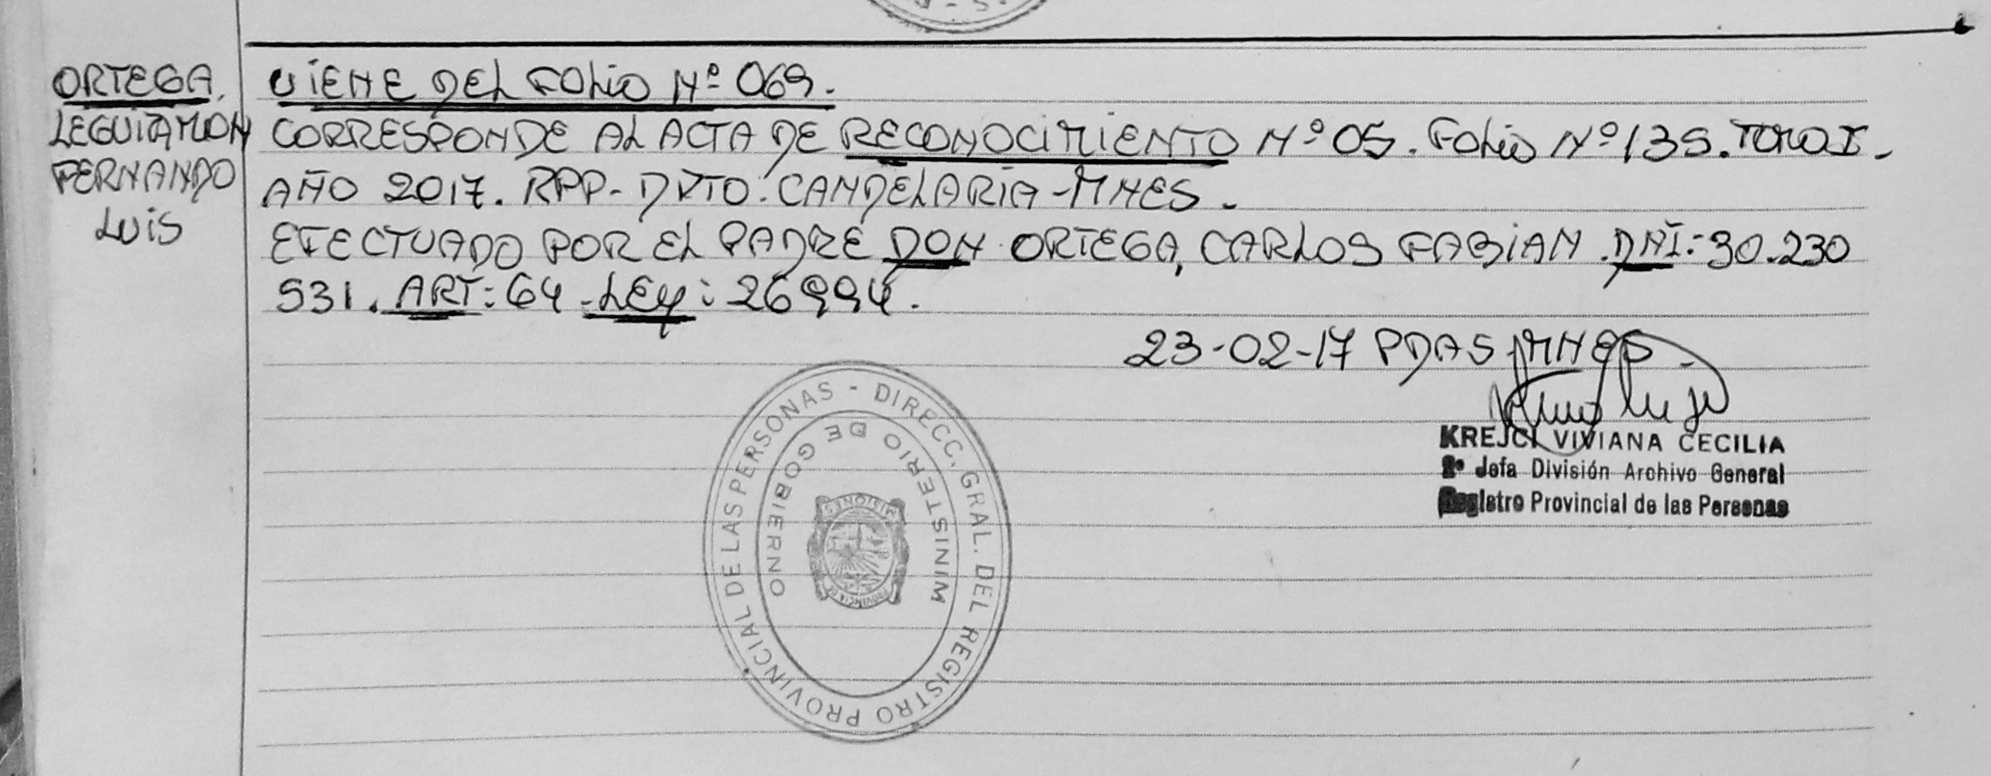 ORTEGA,
LEGUIZAMON
FERNANDO
LUIS
VIENE DEL FOLIO Nº 069.
CORRESPONDE AL ACTA DE RECONOCIMIENTO Nº 05. FOLIO Nº 135. TOMO I.
AÑO 2017. RPP- DPTO. CANDELARIA-MNES.
EFECTUADO POR EL PADRE DON ORTEGA, CARLOS FABIAN. DNI: 30.230
531. ART: 64-LEY: 26994.
23-02-17 PDAS MNES
KREJCI VIVIANA CECILIA
2º Jefa División Archivo General
Registro Provincial de las Personas
DIRECC. GRAL. DEL REGISTRO PROVINCIAL DE LAS PERSONAS -
MINISTERIO DE GOBIERNO
PROVINCIA DE
MISIONES